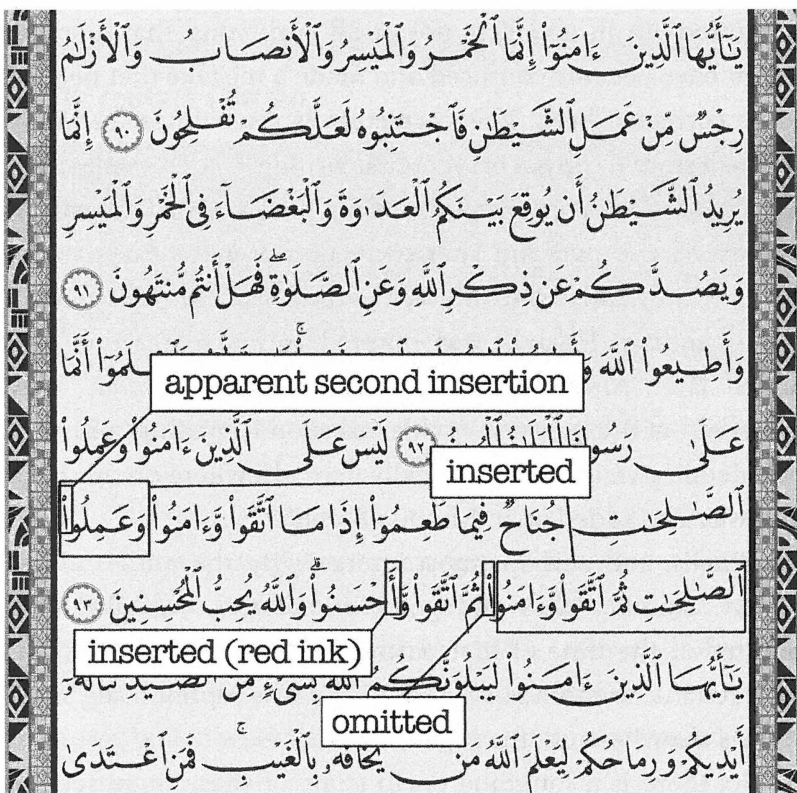 يَٰٓأَيُّهَا ٱلَّذِينَ ءَامَنُوٓا۟ إِنَّمَا ٱلْخَمْرُ وَٱلْمَيْسِرُ وَٱلْأَنصَابُ وَٱلْأَزْلَٰمُ
رِجْسٌ مِّنْ عَمَلِ ٱلشَّيْطَٰنِ فَٱجْتَنِبُوهُ لَعَلَّكُمْ تُفْلِحُونَ ٩٠ إِنَّمَا
يُرِيدُ ٱلشَّيْطَٰنُ أَن يُوقِعَ بَيْنَكُمُ ٱلْعَدَٰوَةَ وَٱلْبَغْضَآءَ فِى ٱلْخَمْرِ وَٱلْمَيْسِرِ
وَيَصُدَّكُمْ عَن ذِكْرِ ٱللَّهِ وَعَنِ ٱلصَّلَوٰةِ ۖ فَهَلْ أَنتُم مُّنتَهُونَ ٩١
وَأَطِيعُوا۟ ٱللَّهَ أَنَّمَا
apparent second insertion
عَلَىٰ رَسُولِنَا ٩٢ لَيْسَ عَلَى ٱلَّذِينَ ءَامَنُوا۟ وَعَمِلُوا۟
inserted
ٱلصَّٰلِحَٰتِ جُنَاحٌ فِيمَا طَعِمُوٓا۟ إِذَا مَا ٱتَّقَوا۟ وَّءَامَنُوا۟ وَعَمِلُوا۟
ٱلصَّٰلِحَٰتِ ثُمَّ ٱتَّقَوا۟ وَّءَامَنُوا۟ ثُمَّ ٱتَّقَوا۟ وَّأَحْسَنُوا۟ ۗ وَٱللَّهُ يُحِبُّ ٱلْمُحْسِنِينَ ٩٣
inserted (red ink)
يَٰٓأَيُّهَا ٱلَّذِينَ ءَامَنُوا۟ لَيَبْلُوَنَّكُمُ ٱللَّهُ بِشَىْءٍ مِّنَ ٱلصَّيْدِ تَنَالُهُۥٓ
omitted
أَيْدِيكُمْ وَرِمَاحُكُمْ لِيَعْلَمَ ٱللَّهُ مَن يَخَافُهُۥ بِٱلْغَيْبِ ۚ فَمَنِ ٱعْتَدَىٰ